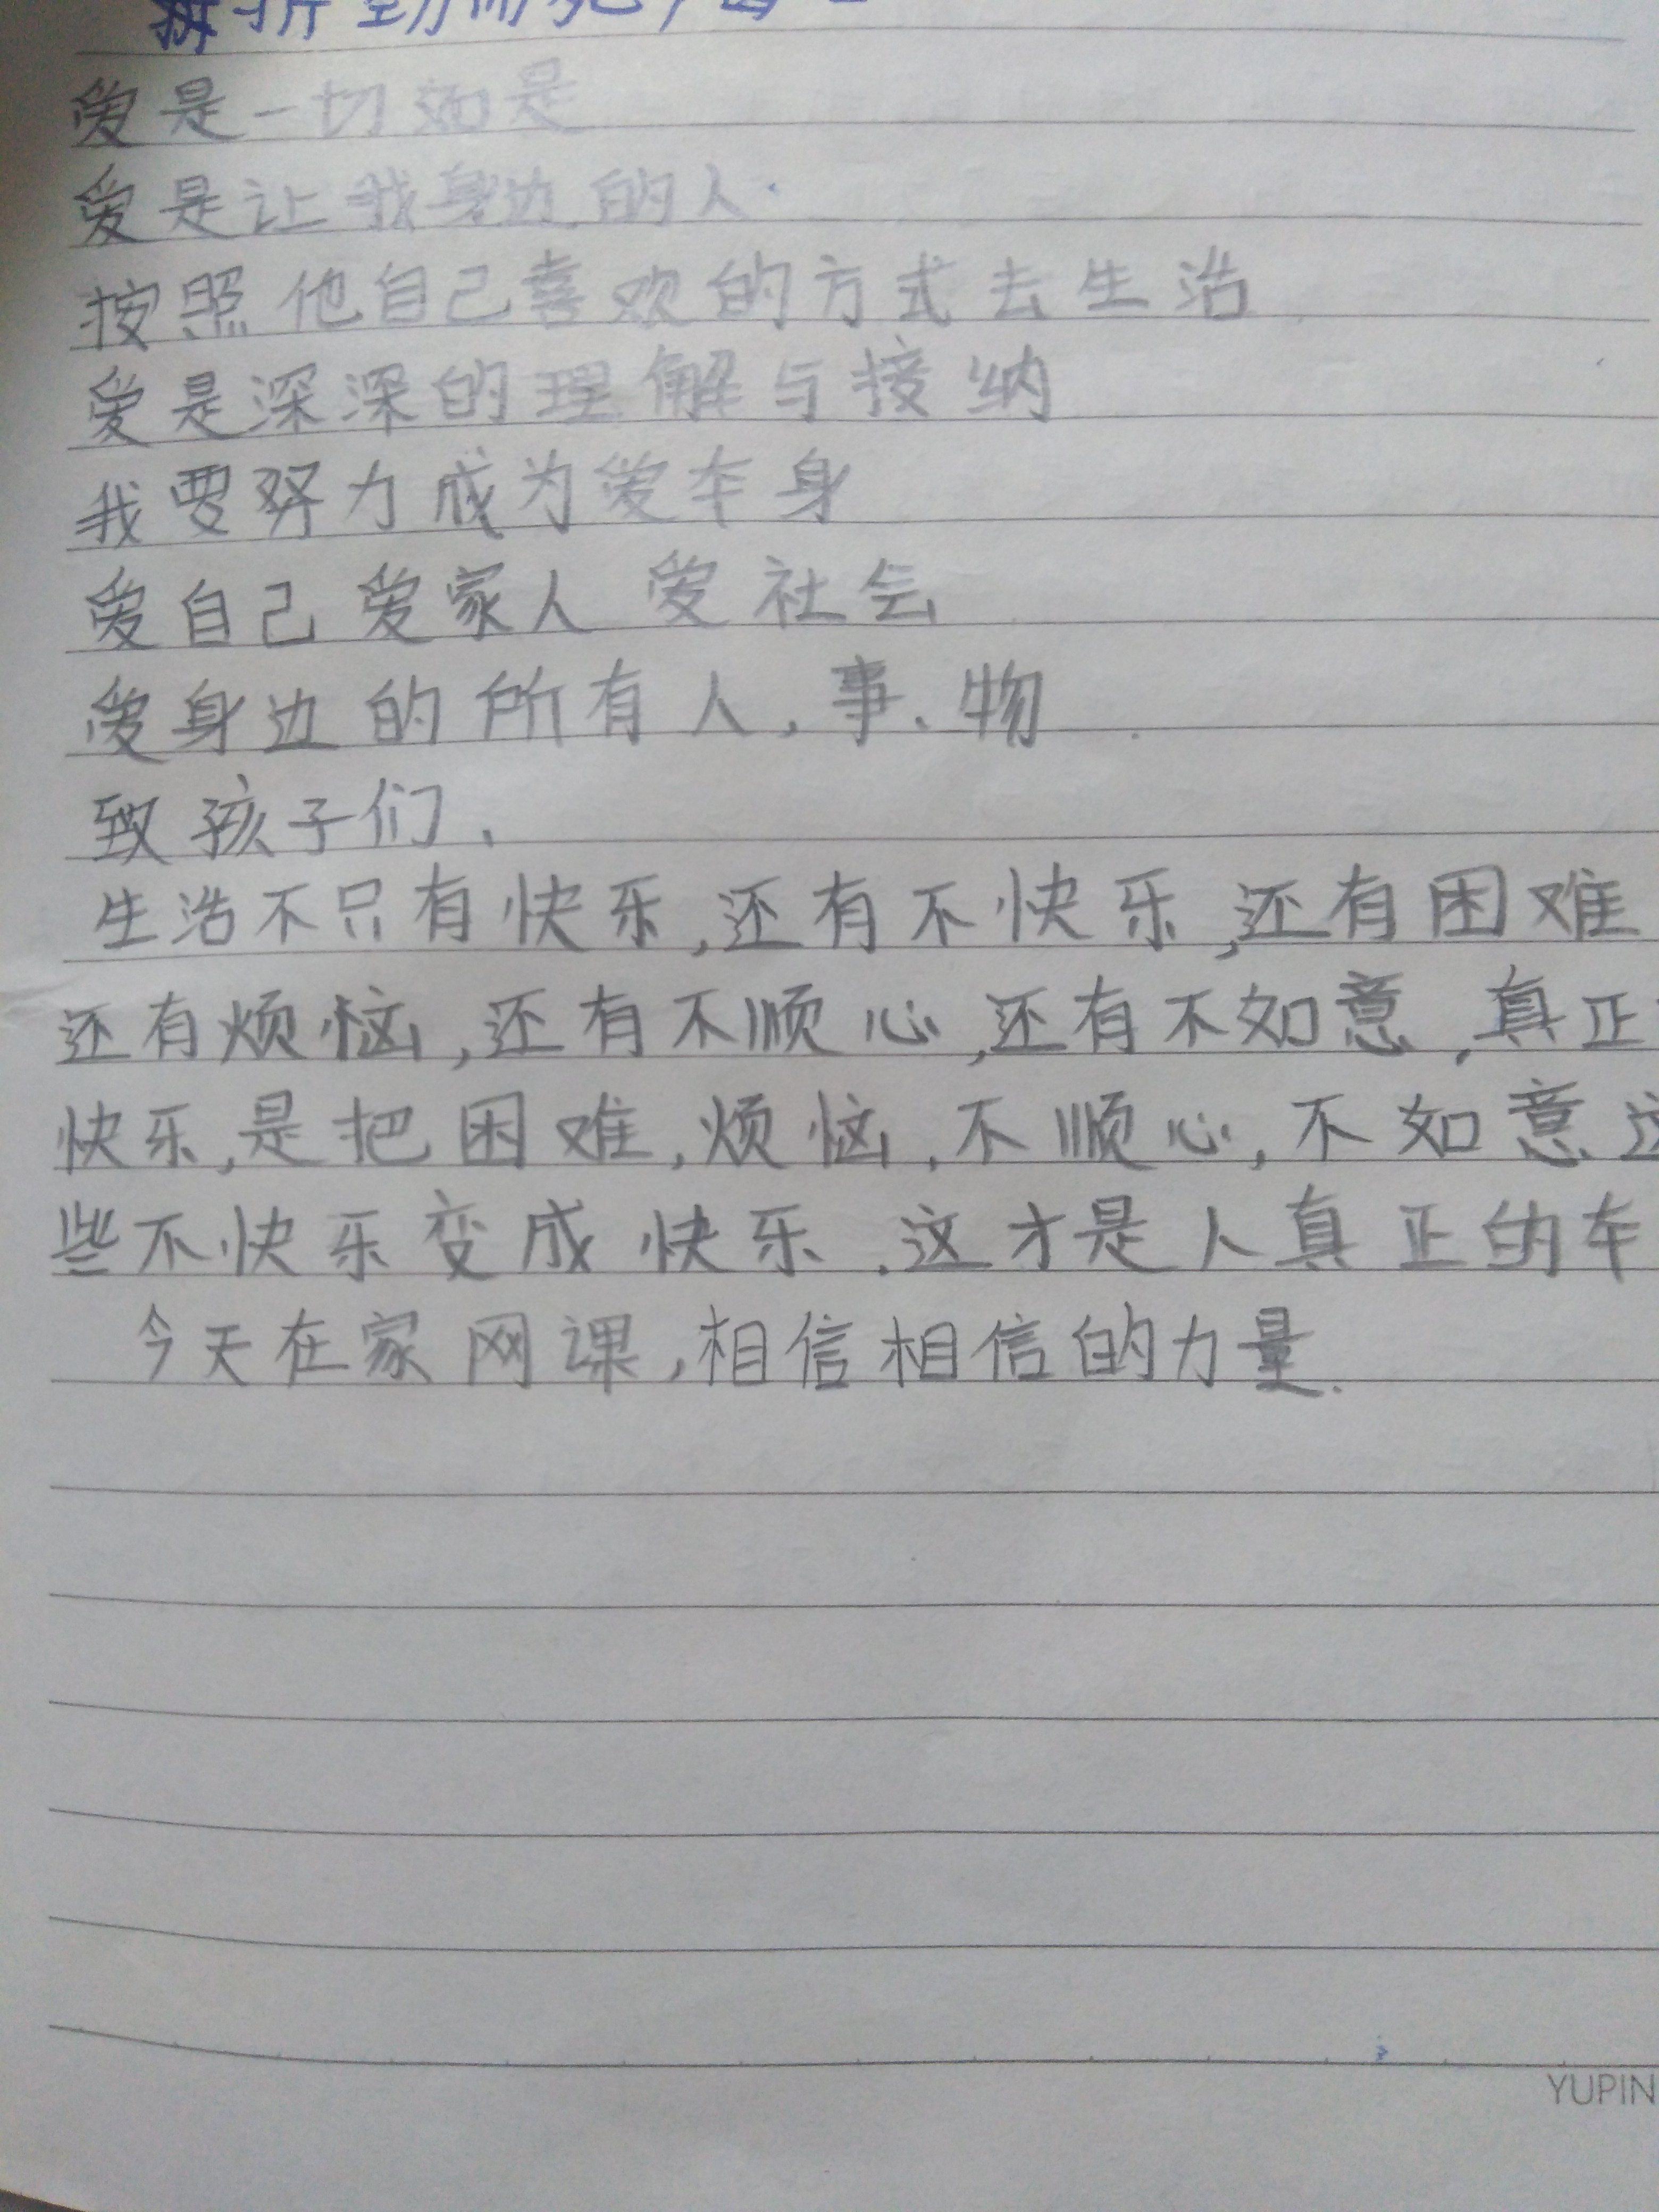 爱是一切如是
爱是让我身边的人
按照他自己喜欢的方式去生活
爱是深深的理解与接纳
我要努力成为爱本身
爱自己 爱家人 爱社会
爱身边的所有人、事、物
致孩子们、
生活不只有快乐,还有不快乐,还有困难
还有烦恼,还有不顺心,还有不如意,真正
快乐,是把困难,烦恼,不顺心,不如意这
些不快乐变成快乐.这才是人真正的本
今天在家网课,相信相信的力量.
YUPIN